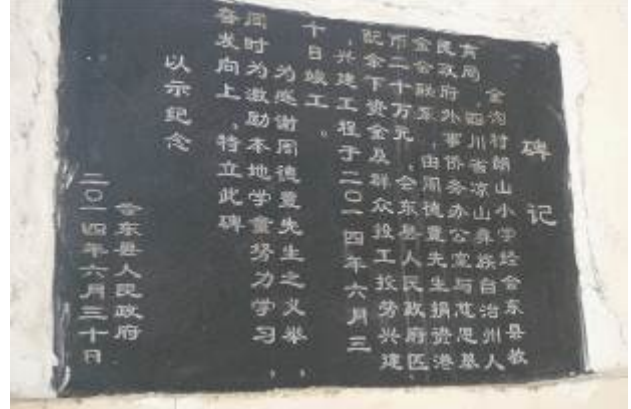 碑记
金沟村朗山小学经会东县教
育局、四川省凉山彝族自治州人
民政府外事侨务办公室与慈恩基
金会联系，由周德置先生捐资港
币二十万元，会东县人民政府匹
配余下资金及群众投工投劳兴建
，兴建工程于二〇一四年六月三
十日竣工。
为感谢周德置先生之义举，
同时为激励本地学童努力学习，
奋发向上，特立此碑
以示纪念
会东县人民政府
二〇一四年六月三十日